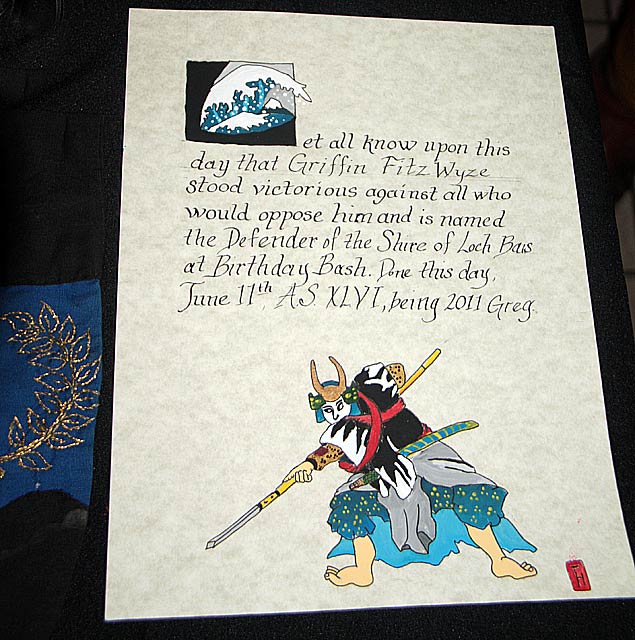 et all know upon this
day that Griffin Fitz Wyze
stood victorious against all who
would oppose him and is named
the Defender of the Shire of Loch Bais
at Birthday Bash. Done this day,
June 11th A.S. XLVI, being 2011 Greg.